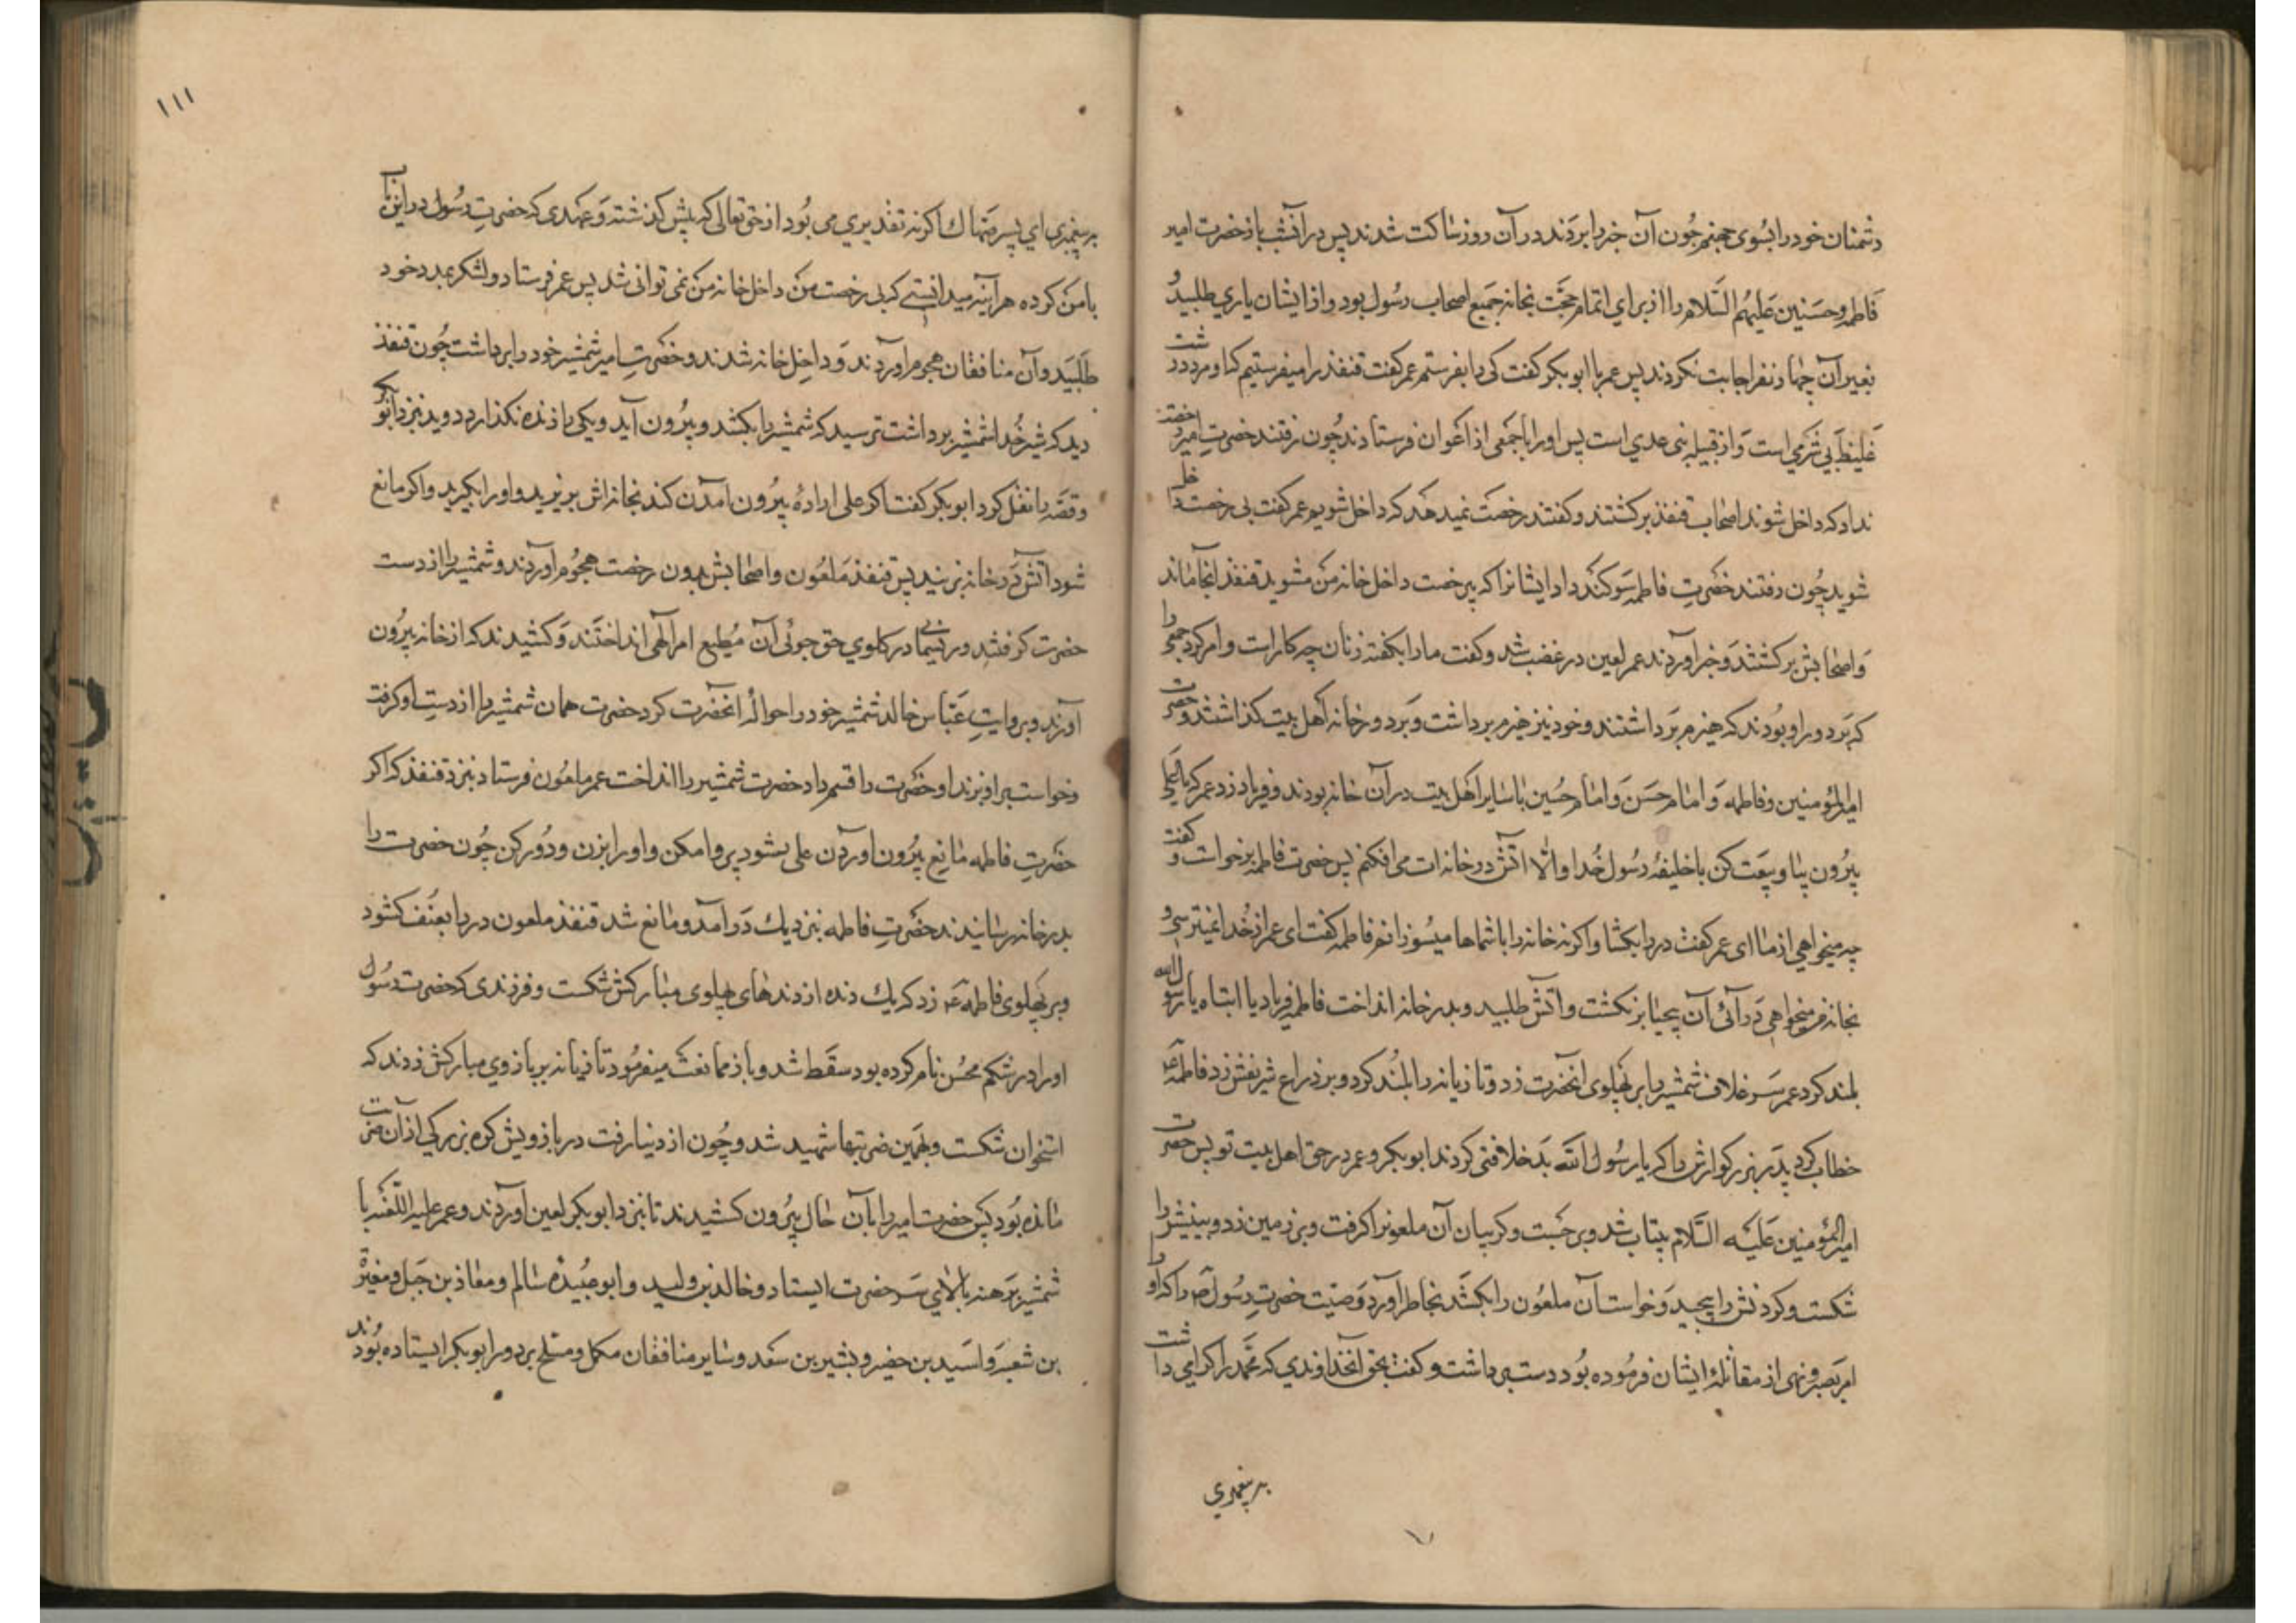 دشمنان خود را بسوی جهنم چون آن خبر را بردند در آن روز ساکت شدند پس در آنشب باز حضرت امیر
فاطمه و حسنین علیهم السلام را از برای اتمام حجت بخانه جمیع اصحاب رسول بود و از ایشان یاری طلبید و
بغیر آن چهار نفر اجابت نکردند پس عمر با ابوبکر کفت کی را بفرستم عمر کفت قنفذ را میفرستیم که او مرد درشت
غلیظ بی شرمی است و از قبیله بنی عدی است پس او را با جمعی از اعوان فرستادند چون رفتند حضرت امیر رخصت
نداد که داخل شوند اصحاب قنفذ برکشتند و کفتند رخصت نمیدهد که داخل شویم عمر کفت بی رخصت داخل
شوید چون رفتند حضرت فاطمه سوکند داد ایشانرا که بی رخصت داخل خانه من مشوید قنفذ آنجا ماند
و اصحابش برکشتند و خبر آوردند عمر لعین در غضب شد و کفت ما را بکفته زنان چه کار است و امر کرد جمعی را
که بر دور او بودند که هیزم برداشتند و خود نیز هیزم برداشت و بر در خانه اهل بیت کذاشتند و حضرت
امیرالمؤمنین و فاطمه و امام حسن و امام حسین با سایر اهل بیت در آن خانه بودند و فریاد زد عمر که یا علی
بیرون بیا و بیعت کن با خلیفه رسول خدا و الا آتش در خانه ات می افکنم پس حضرت فاطمه برخواست و کفت
چه میخواهی از ما ای عمر کفت در را بکشا و اکرنه خانه را با شماها میسوزانم فاطمه کفت ای عمر از خدا نمیترسی و
بخانه من میخواهی در آئی آن بیحیا برنکشت و آتش طلبید و بدر خانه انداخت فاطمه فریاد یا ابتاه یا رسول الله
بلند کرد عمر سر غلاف شمشیر را بر پهلوی آنحضرت زد و تازیانه را بلند کرد و بر ذراع شریفش زد فاطمه ع
خطاب کرد پدر بزرکوارش را که یا رسول الله بد خلافتی کردند ابوبکر و عمر در حق اهل بیت تو پس حضرت
امیرالمؤمنین علیه السلام بیتاب شد و برجست و کریبان آن ملعونرا کرفت و بر زمین زد و بینیش را
شکست و کردنش را پیچید و خواست آن ملعون را بکشد بخاطر آورد وصیت حضرت رسول ص را که او را
امر بصبر و نهی از مقاتله ایشان فرموده بود دست برداشت و کفت بحق آنخداوندی که محمد را کرامی داشت
به پیغمبری
۱۱۱
به پیغمبری ای پسر ضهاک اکر نه تقدیری می بود از حق تعالی که پیش کذشته و عهدی که حضرت رسول در این باب
با من کرده هر آینه میدانستی که بی رخصت من داخل خانه من نمی توانی شد پس عمر فرستاد و لشکر بمدد خود
طلبید و آن منافقان هجوم آوردند و داخل خانه شدند و حضرت امیر شمشیر خود را برداشت چون قنفذ
دید که شیر خدا شمشیر برداشت ترسید که شمشیر را بکشد و بیرون آید و یکی را زنده نکذارد دوید نزد ابوبکر
و قصه را نقل کرد ابوبکر کفت اکر علی اراده بیرون آمدن کند بخانه اش بریزید و او را بکیرید و اکر مانع
شود آتش در خانه زنید پس قنفذ ملعون و اصحابش بدون رخصت هجوم آوردند و شمشیر را از دست
حضرت کرفتند و ریسمانی در کلوی حق جوئی آن مطیع امر الهی انداختند و کشیدند که از خانه بیرون
آورند و بروایت عباس خالد شمشیر خود را حواله آنحضرت کرد حضرت همان شمشیر را از دست او کرفت
و خواست بر او بزند او حضرت را قسم داد حضرت شمشیر را انداخت عمر ملعون فرستاد نزد قنفذ که اکر
حضرت فاطمه مانع بیرون آوردن علی بشود پروا مکن و او را بزن و دور کن چون حضرت را
بدر خانه رسانیدند حضرت فاطمه نزدیک در آمد و مانع شد قنفذ ملعون در را بعنف کشود
و بر پهلوی فاطمه ع زد که یک دنده از دندهای پهلوی مبارکش شکست و فرزندی که حضرت رسول
او را در شکم محسن نام کرده بود سقط شد و باز ممانعت میفرمود تا زیانه بر بازوی مبارکش زدند که
استخوان شکست و بهمین ضربتها شهید شد و چون از دنیا رفت در بازویش کره بزرکی از آن ضربت
مانده بود پس حضرت امیر را بآن حال بیرون کشیدند تا نزد ابوبکر لعین آوردند و عمر علیه اللعنه با
شمشیر برهنه بالای سر حضرت ایستاد و خالد بن ولید و ابوعبیده سالم و معاذ بن جبل و مغیرة
بن شعبه و اسید بن حضیر و بشیر بن سعد و سایر منافقان مکمل و مسلح بر دور ابوبکر ایستاده بودند